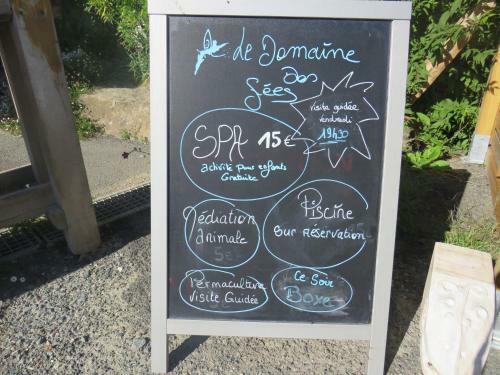 Le Domaine
des
fées
Visite guidée
vendredi
19h30
SPA 15€
activité pour enfants
Gratuite
Médiation
animale
5€
Piscine
sur réservation
Permaculture
Visite Guidée
Ce Soir
Boxe